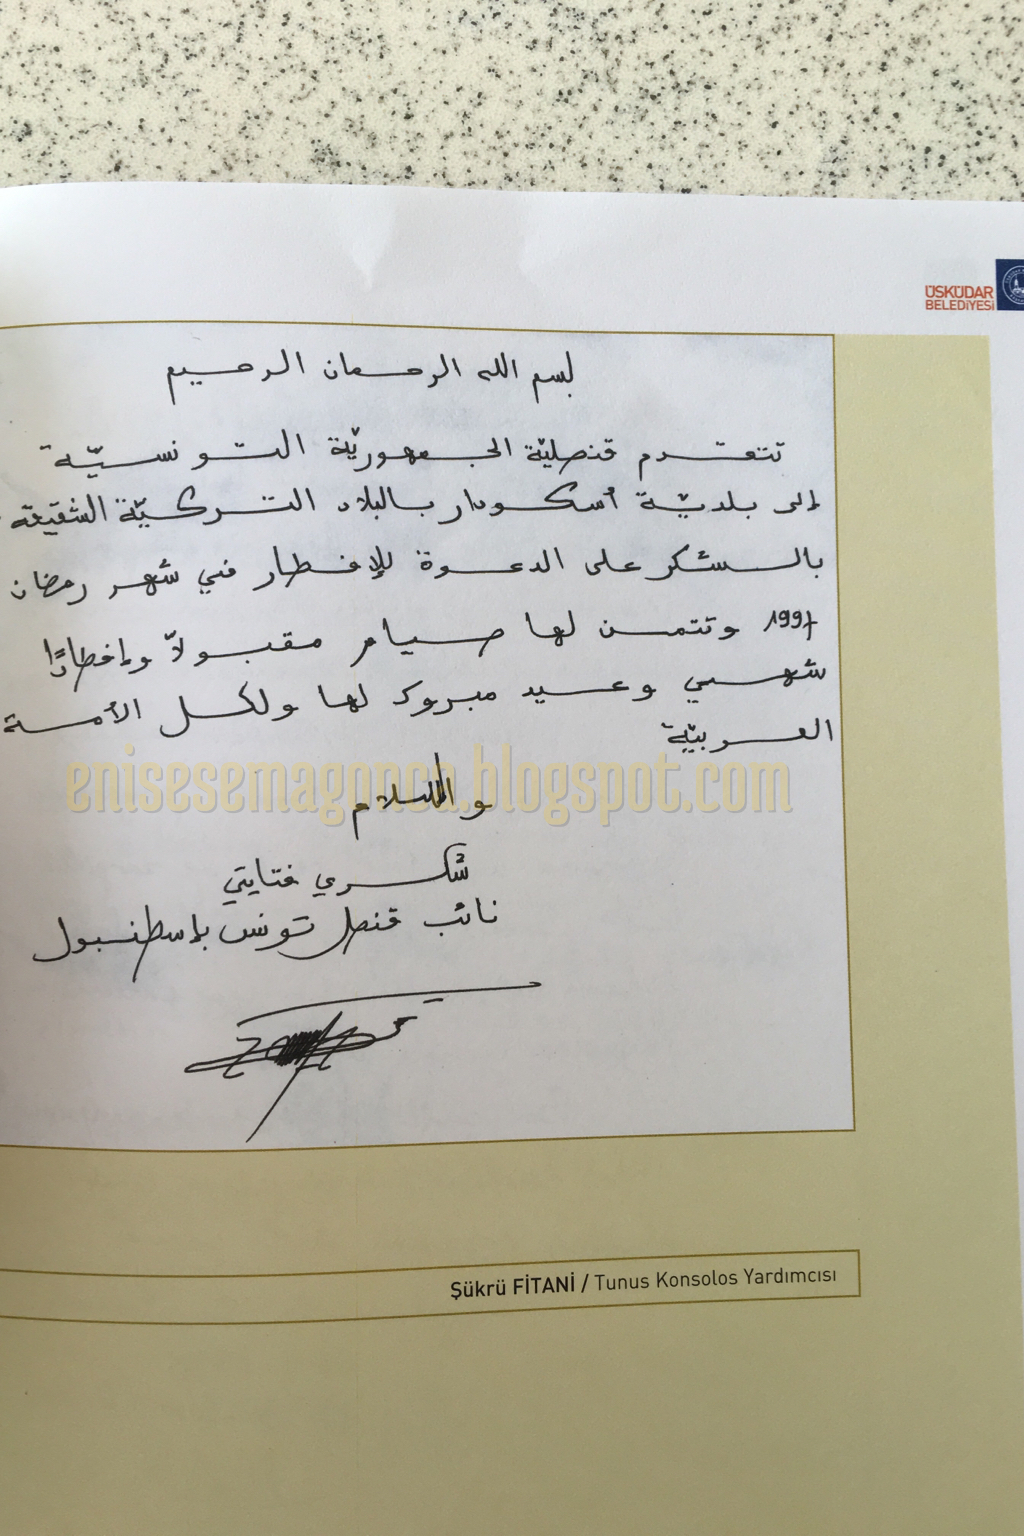 ÜSKÜDAR
BELEDİYESİ
بسم الله الرحمان الرحيم
تتقدم قنصليّة الجمهوريّة التونسيّة
إلى بلديّة أسكودار بالبلاد التركيّة الشقيقة
بالشكر على الدعوة للإفطار في شهر رمضان
1997 وتتمن لها صيام مقبولاّ وإفطارًا
شهي وعيد مبروك لها ولكل الأمة
العربيّة
enisesemagonca.blogspot.com
والسلام
شكري فتايتي
نائب قنصل تونس بإسطنبول
Şükrü FİTANİ / Tunus Konsolos Yardımcısı